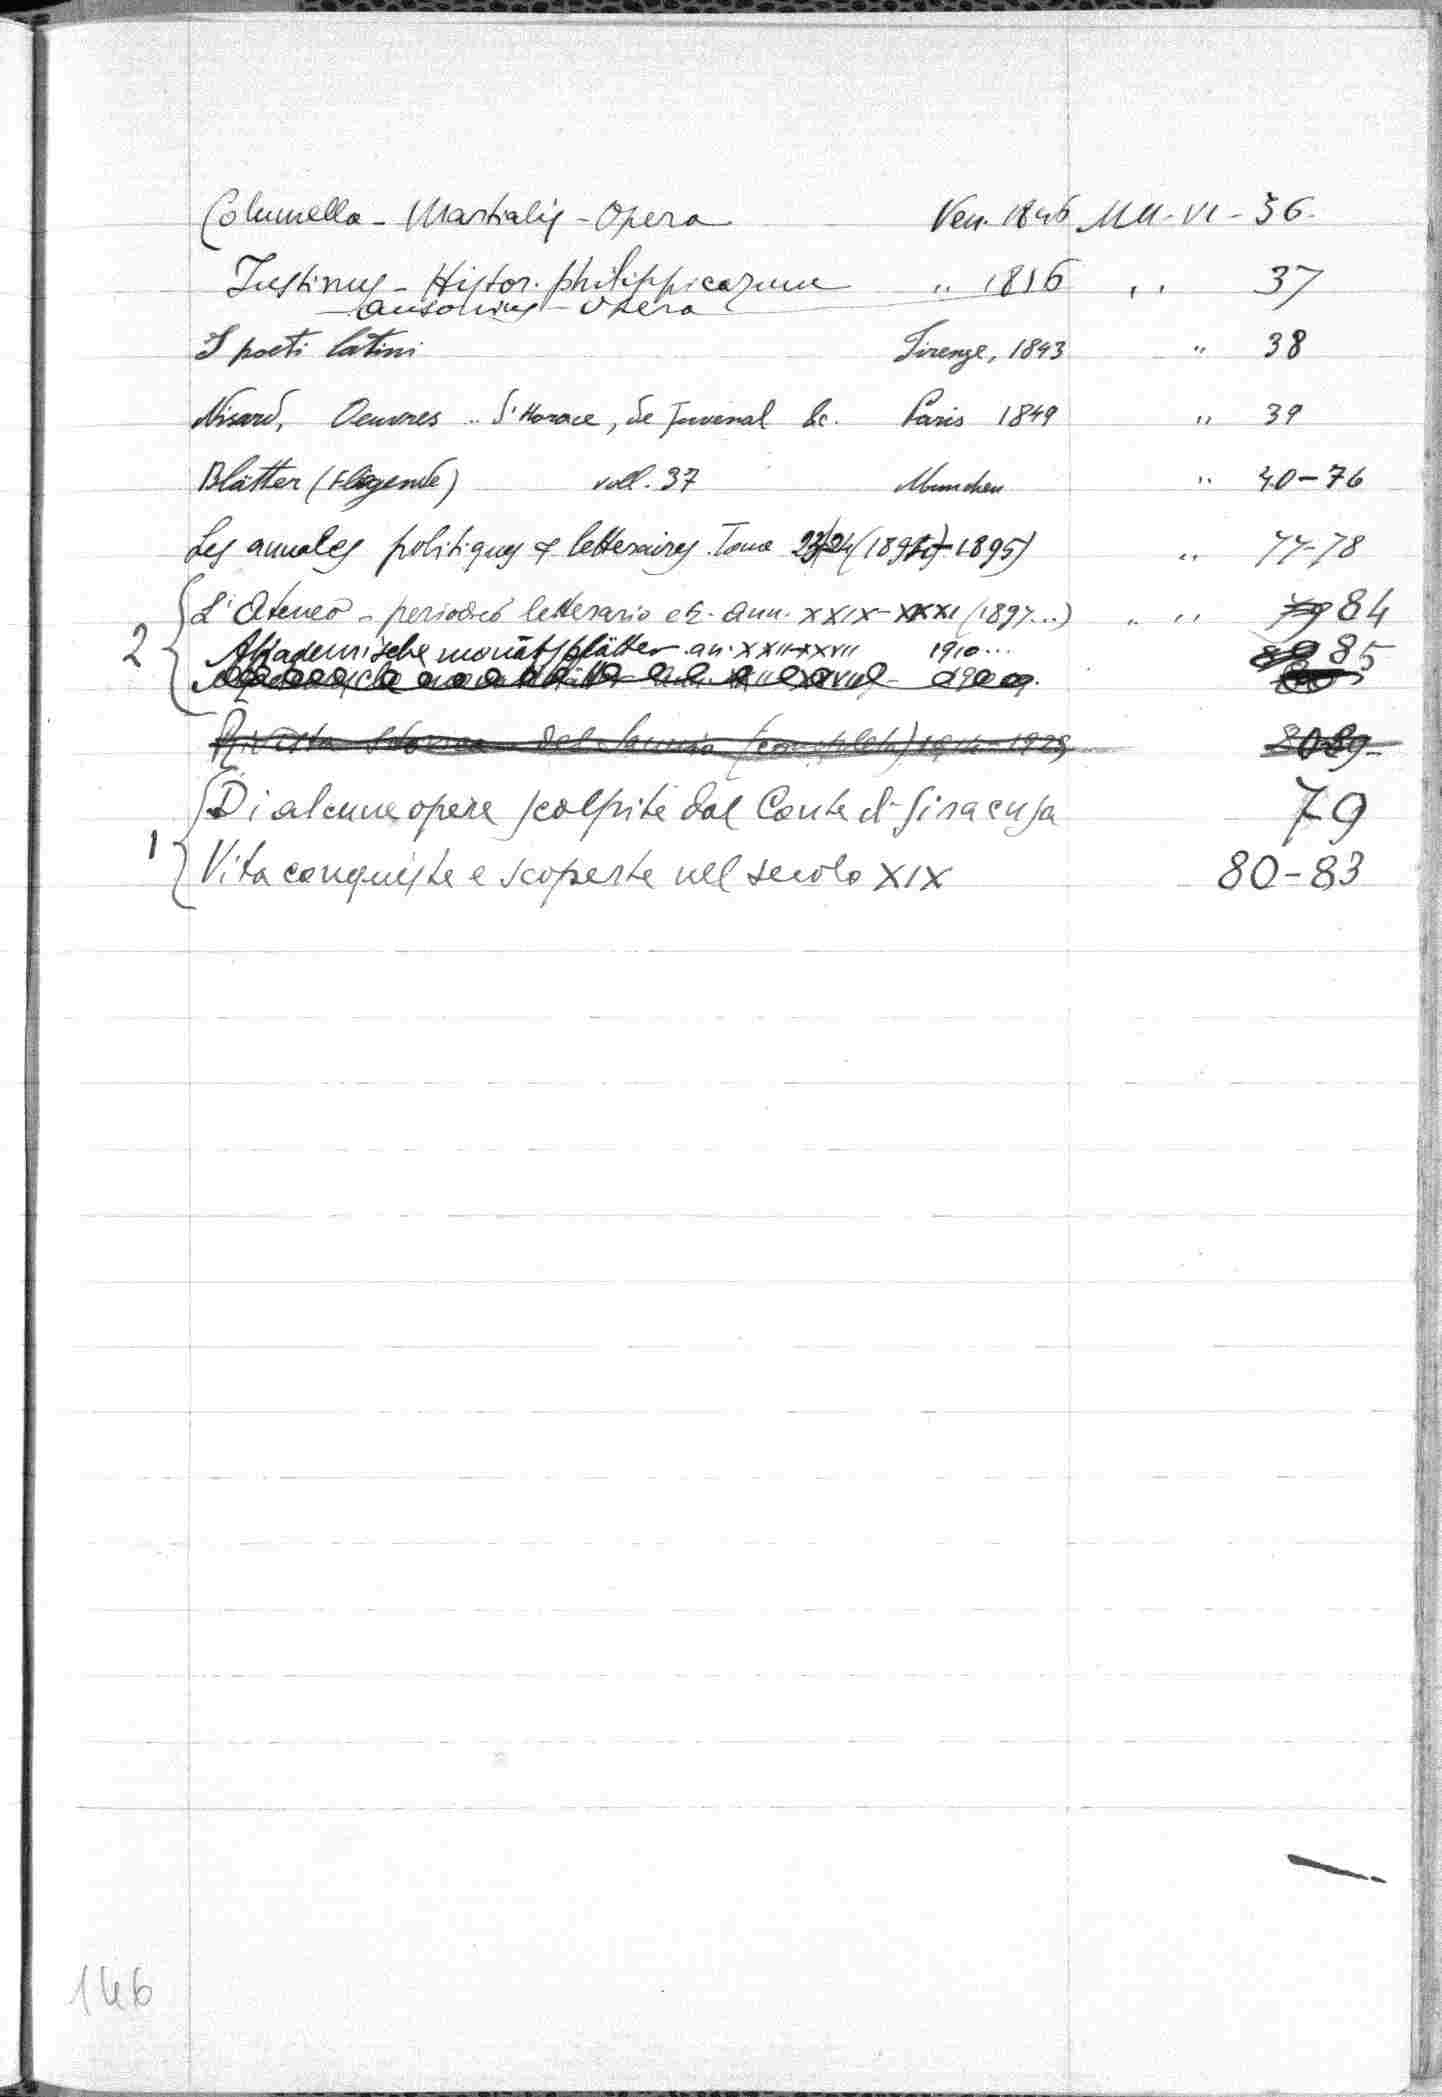 Columella - Martialis - Opera Ven. 1846 MM-VI-36.
Justinus - Histor. philippicarum " 1856 " 37
Ausonius - Opera
I poeti latini Firenze, 1843 " 38
Nisard, Oeuvres .. d'Horace, de Juvenal &c. Paris 1849 " 39
Blätter (Fliegende) voll. 37 Munchen " 40-76
Les annales politiques & letteraires. Tome 23/24 (1894-1895) " 77-78
2 L'Ateneo - periodico letterario etc. ann. XXIX-XXXI (1897...) " " 79 84
Akademische monatsblätter an. XXII-XXVII 1910... 85
Rivista storica del Sannio (completa) 1914-1923 80-89
Di alcune opere scolpite dal Conte di Siracusa 79
1 Vita conquiste e scoperte nel secolo XIX 80-83
146